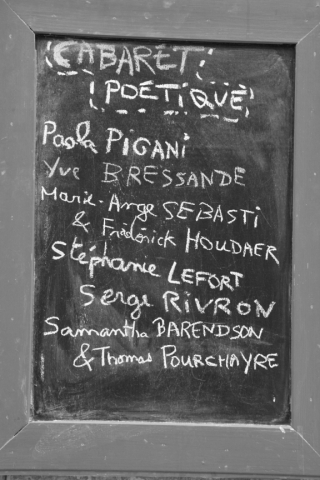 CABARET
POÉTIQUE
Paola PIGANI
Yve BRESSANDE
Marie-Ange SEBASTI
& Frédérick HOUDAER
Stéphanie LEFORT
Serge RIVRON
Samantha BARENDSON
& Thomas POURCHAYRE